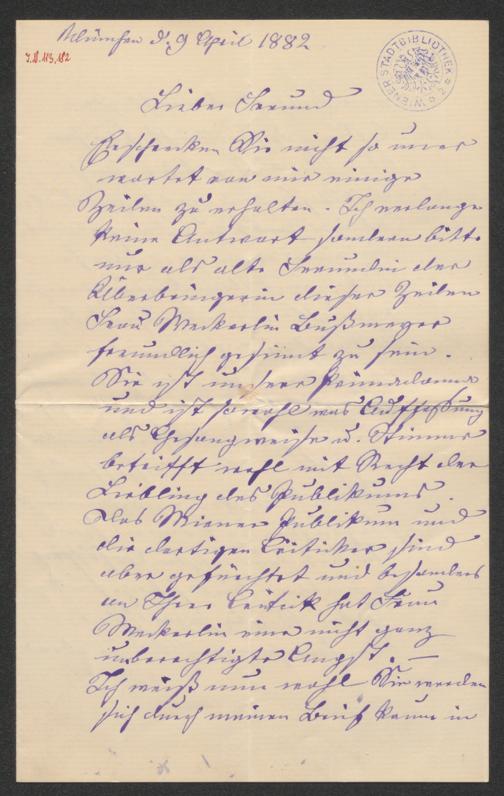 München d. 9 April 1882
I.N. 113,182
WIENER STADTBIBLIOTHEK
Lieber Freund
Erschrecken Sie nicht so uner
wartet von mir einige
Zeilen zu erhalten. Ich verlange
keine Antwort sondern bitte
nur als alte Freundin der
Überbringerin dieser Zeilen
Frau Weckerlin Bußmeyer
freundlich gesinnt zu sein.
Sie ist unsere Primadonna
und ist sowohl was Auffassung
als Gesangweise u. Stimme
betrifft wohl mit Recht der
Liebling des Publikums.
Das Wiener Publikum und
die dortigen Kritiker sind
aber gefürchtet und besonders
an Ihrer Kritik hat Frau
Weckerlin eine nicht ganz
unberechtigte Angst. —
Ich weiß nun wohl Sie werden
sich durch meinen Brief kaum in